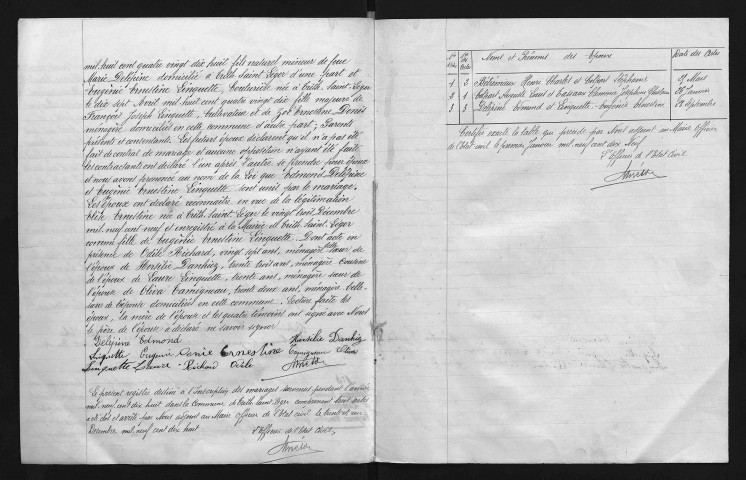 mil huit cent quatre vingt dix huit fils naturel mineur de feue
Marie Delépine domiciliée à Crith Saint Léger d'une part et
Eugénie Ernestine Linquette, Couturière née à Crith Saint Léger
le dix sept Avril mil huit cent quatre vingt dix fille majeure de
François Joseph Linquette, Cultivateur et de Zoé Ernestine Denis
ménagère domiciliés en cette commune d'autre part; Parents
présents et consentants. Les futurs époux déclarent qu'il n'a pas été
fait de contrat de mariage et aucune opposition n'ayant été faite
les contractants ont déclaré l'un après l'autre se prendre pour époux
et nous avons prononcé au nom de la Loi que Edmond Delépine
et Eugénie Ernestine Linquette sont unis par le mariage.
Les époux ont déclaré reconnaître en vue de la légitimation
Elise Ernestine née à Crith Saint Léger le vingt trois Décembre
mil neuf cent neuf et enregistrée à la Mairie de Crith Saint Léger
comme fille de Eugénie Ernestine Linquette. Dont acte en
présence de Odile Richard, vingt sept ans, ménagère soeur de
l'époux de Hersilie Danhiez, trente trois ans, ménagère Cousine
de l'époux de Laure Linquette, trente ans, ménagère soeur de
l'épouse de Oliva Carnigneau, trente deux ans, ménagère belle-
soeur de l'épouse domiciliés en cette commune. Lecture faite les
époux, la mère de l'épouse et les quatre témoins ont signé avec Nous
le père de l'épouse a déclaré ne savoir signer
Delépine Edmond Hersilie Danhiez
Linquette Eugénie Denis Ernestine Oliva
Linquette Laure Richard Odile
Le présent registre destiné à l'Inscription des mariages survenus pendant l'année
mil neuf cent dix huit dans la Commune de Crith Saint Léger comprenant trois actes
a été clos et arrêté par Nous adjoint au Maire officier de l'Etat civil le trente et un
Décembre mil neuf cent dix huit
L'officier de l'Etat Civil,
Noms et Prénoms des Epoux Date des Actes
1 2 Henri Charles et Stéphanie 25 Mars
2 1 Auguste Paul et Joséphine Janvier
3 3 Delépine Edmond et Linquette Eugénie Ernestine 28 Septembre
Certifié exacte la table qui précède par Nous adjoint au Maire Officier
de l'Etat civil le premier janvier mil neuf cent dix Neuf
L'Officier de l'Etat Civil